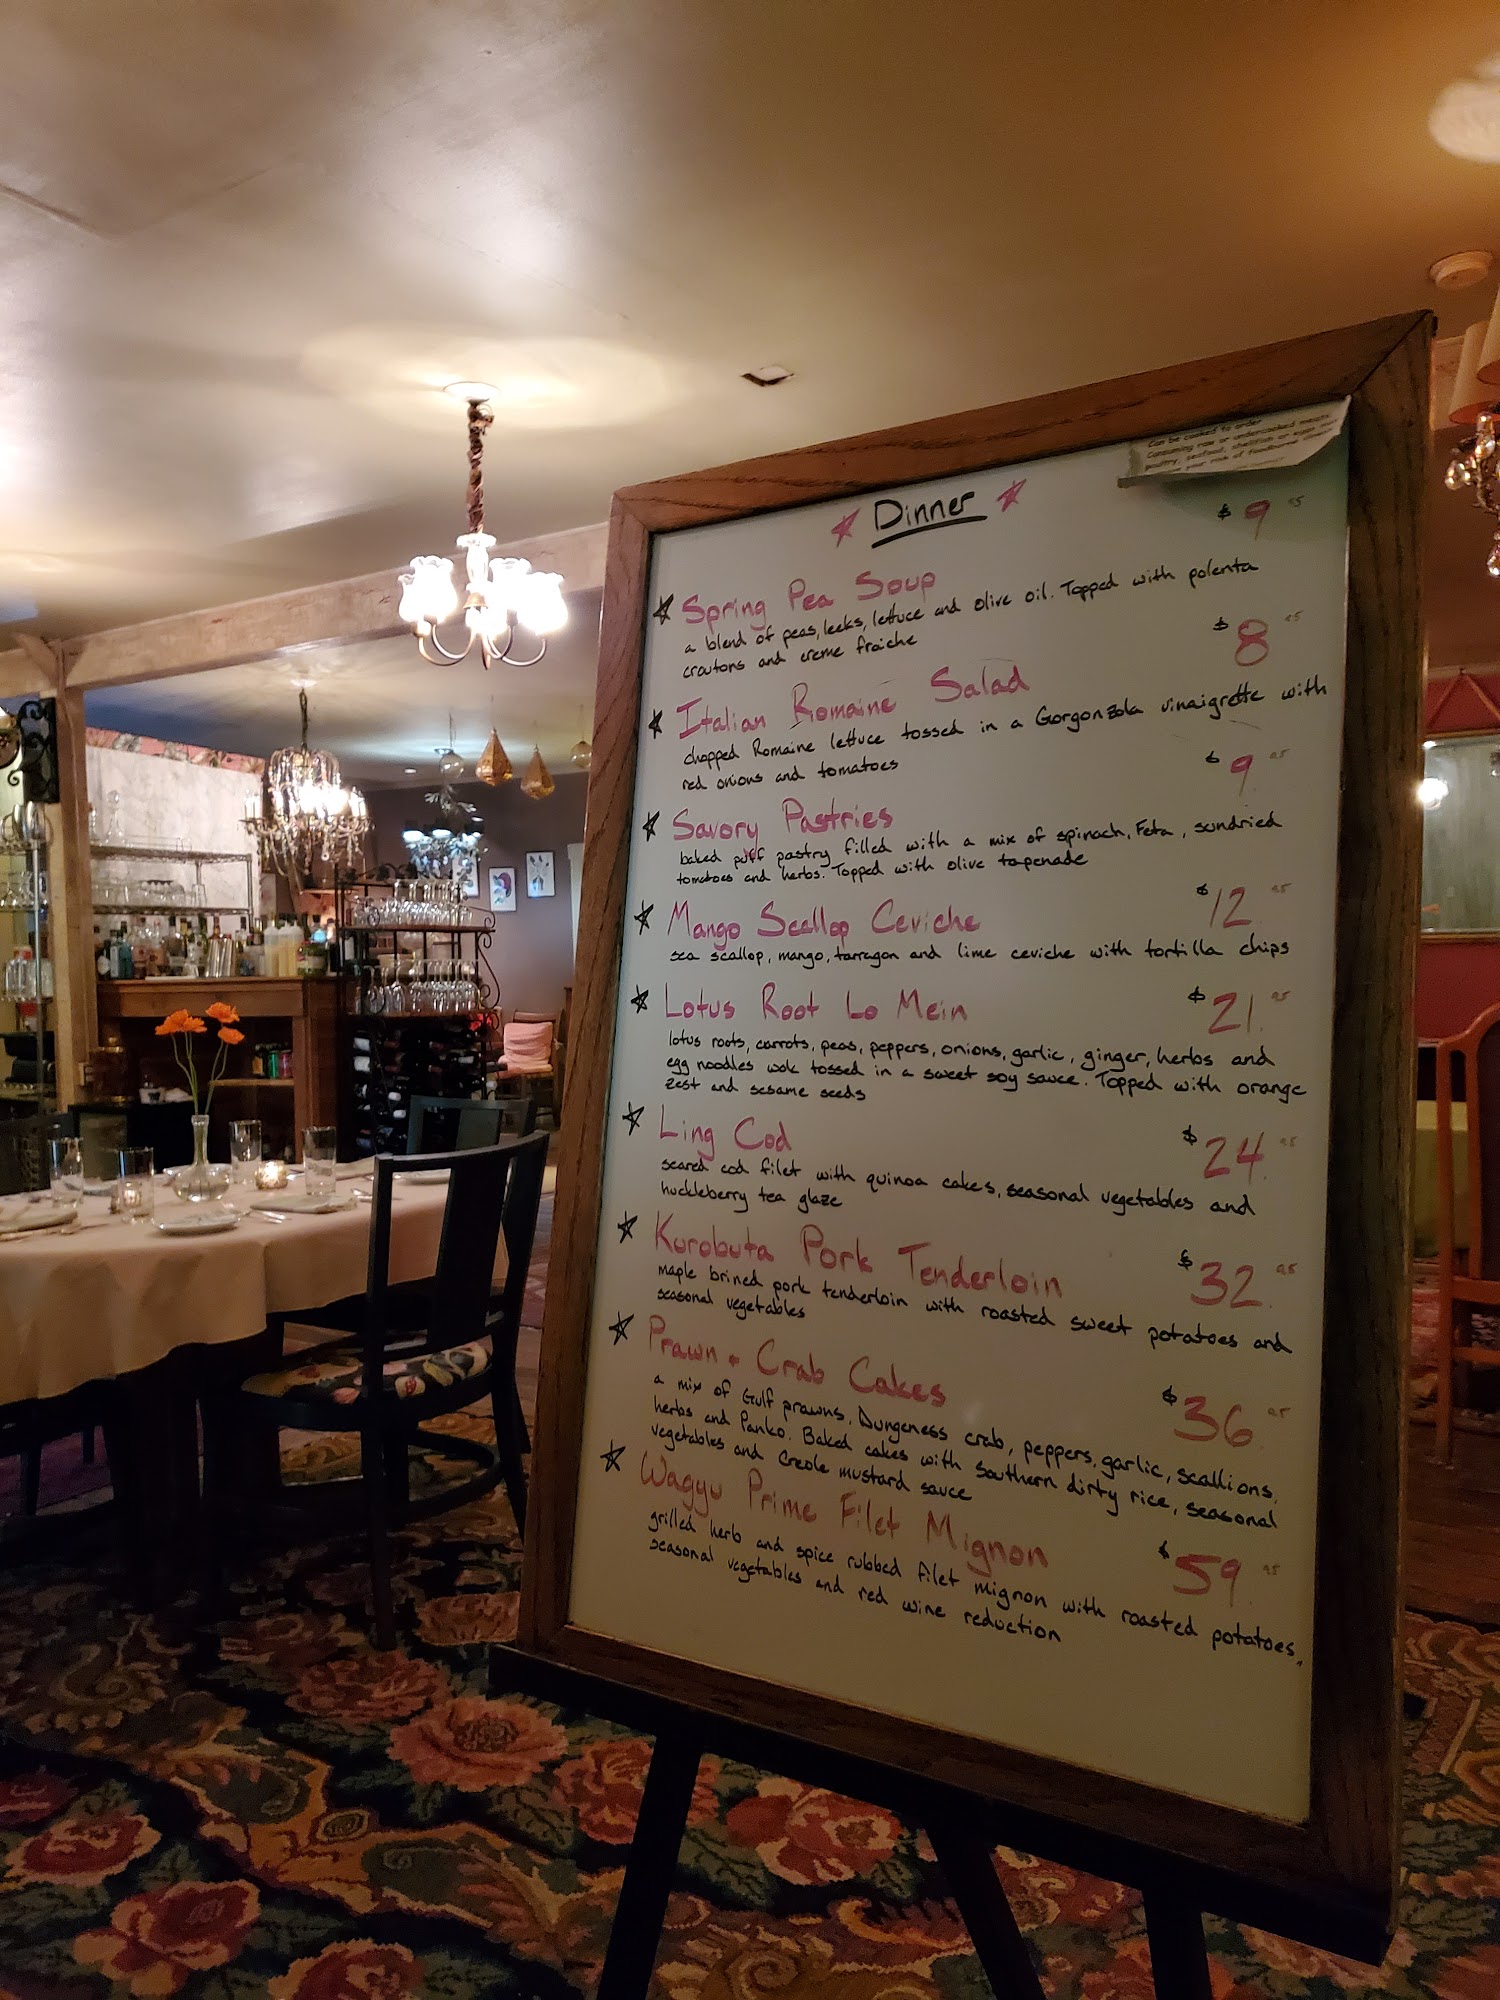 Can be cooked to order
Consuming raw or undercooked meats,
poultry, seafood, shellfish or eggs may
your risk of foodborne illness
Dinner
$9.95
Spring Pea Soup
a blend of peas, leeks, lettuce and olive oil. Topped with polenta
croutons and creme fraiche
$8.95
Italian Romaine Salad
chopped Romaine lettuce tossed in a Gorgonzola vinaigrette with
red onions and tomatoes
$9.95
Savory Pastries
baked puff pastry filled with a mix of spinach, Feta, sundried
tomatoes and herbs. Topped with olive tapenade
$12.95
Mango Scallop Ceviche
sea scallop, mango, tarragon and lime ceviche with tortilla chips
Lotus Root Lo Mein $21.95
lotus roots, carrots, peas, peppers, onions, garlic, ginger, herbs and
egg noodles wok tossed in a sweet soy sauce. Topped with orange
zest and sesame seeds
Ling Cod $24.95
seared cod filet with quinoa cakes, seasonal vegetables and
huckleberry tea glaze
Kurobuta Pork Tenderloin $32.95
maple brined pork tenderloin with roasted sweet potatoes and
seasonal vegetables
Prawn + Crab Cakes $36.95
a mix of Gulf prawns, Dungeness crab, peppers, garlic, scallions,
herbs and Panko. Baked cakes with Southern dirty rice, seasonal
vegetables and Creole mustard sauce
Wagyu Prime Filet Mignon $59.95
grilled herb and spice rubbed filet mignon with roasted potatoes,
seasonal vegetables and red wine reduction